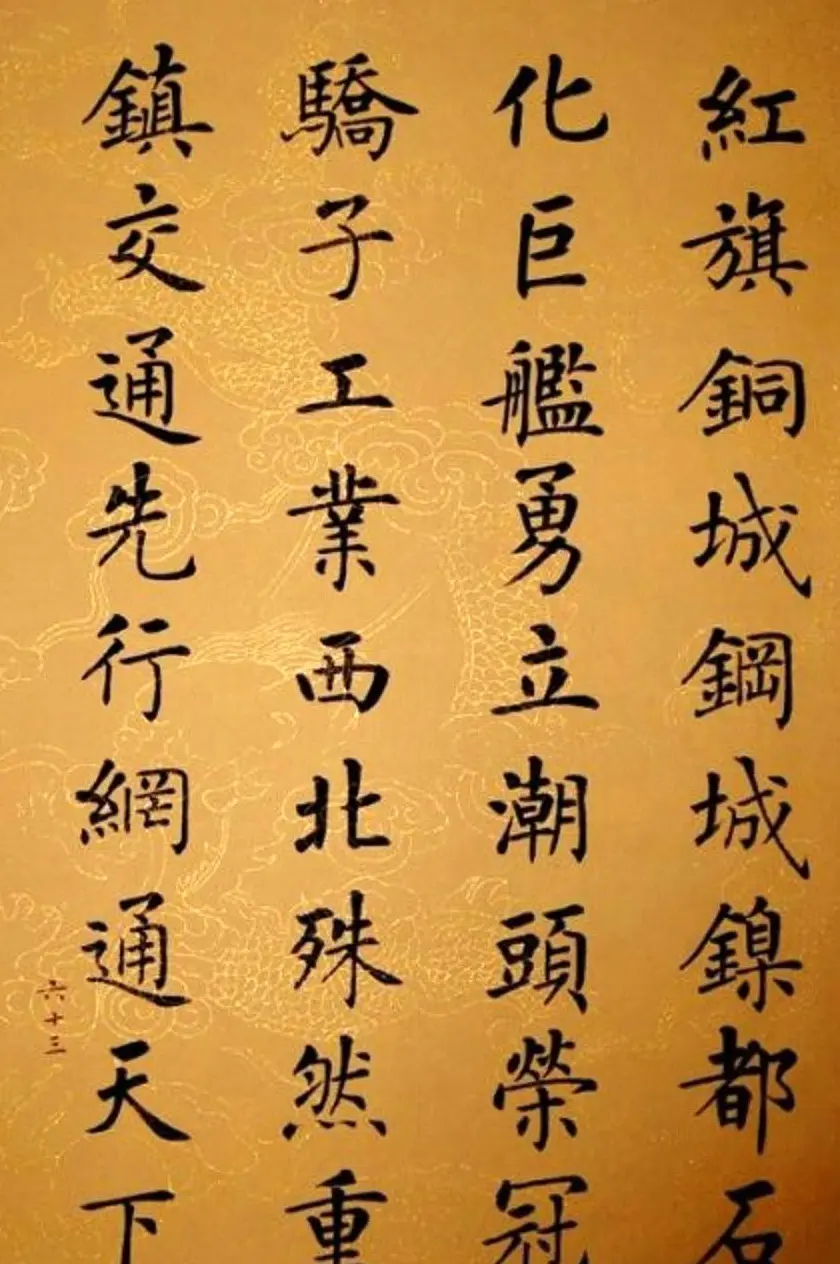 紅旗銅城鋼城鎳都石
化巨艦勇立潮頭榮冠
驕子工業西北殊然重
鎮交通先行網通天下
六十三